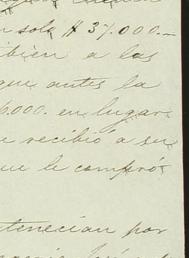 solo $ 37.000.—
bien a las
que antes la
6.000. en lugar
recibió a su
que le compró
tenecian por